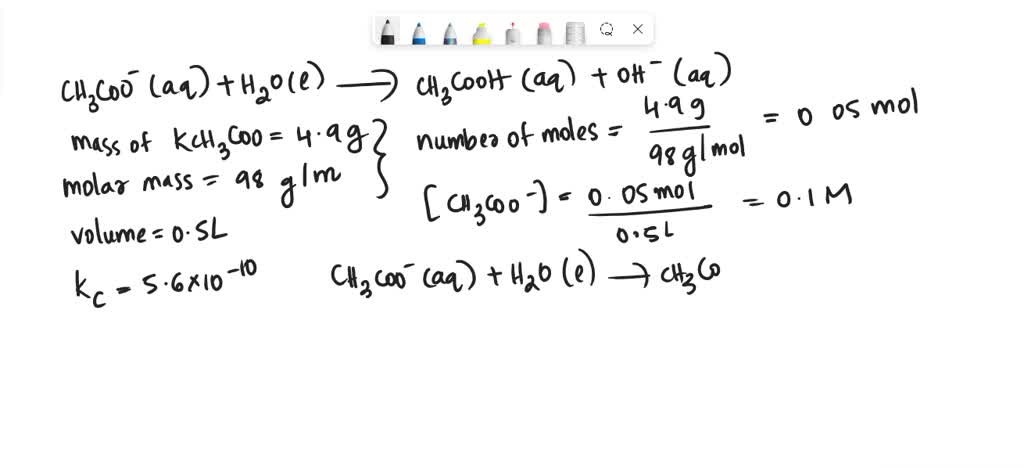 CH₃COO⁻ (aq) + H₂O(l) ⟶ CH₃COOH (aq) + OH⁻ (aq)
mass of KCH₃COO = 4.9g
molar mass = 98 g/m
number of moles = 4.9g / 98g/mol = 0 05 mol
volume = 0.5L
[CH₃COO⁻] = 0.05mol / 0.5L = 0.1M
Kc = 5.6×10⁻¹⁰
CH₃COO⁻ (aq) + H₂O (l) ⟶ CH₃CO